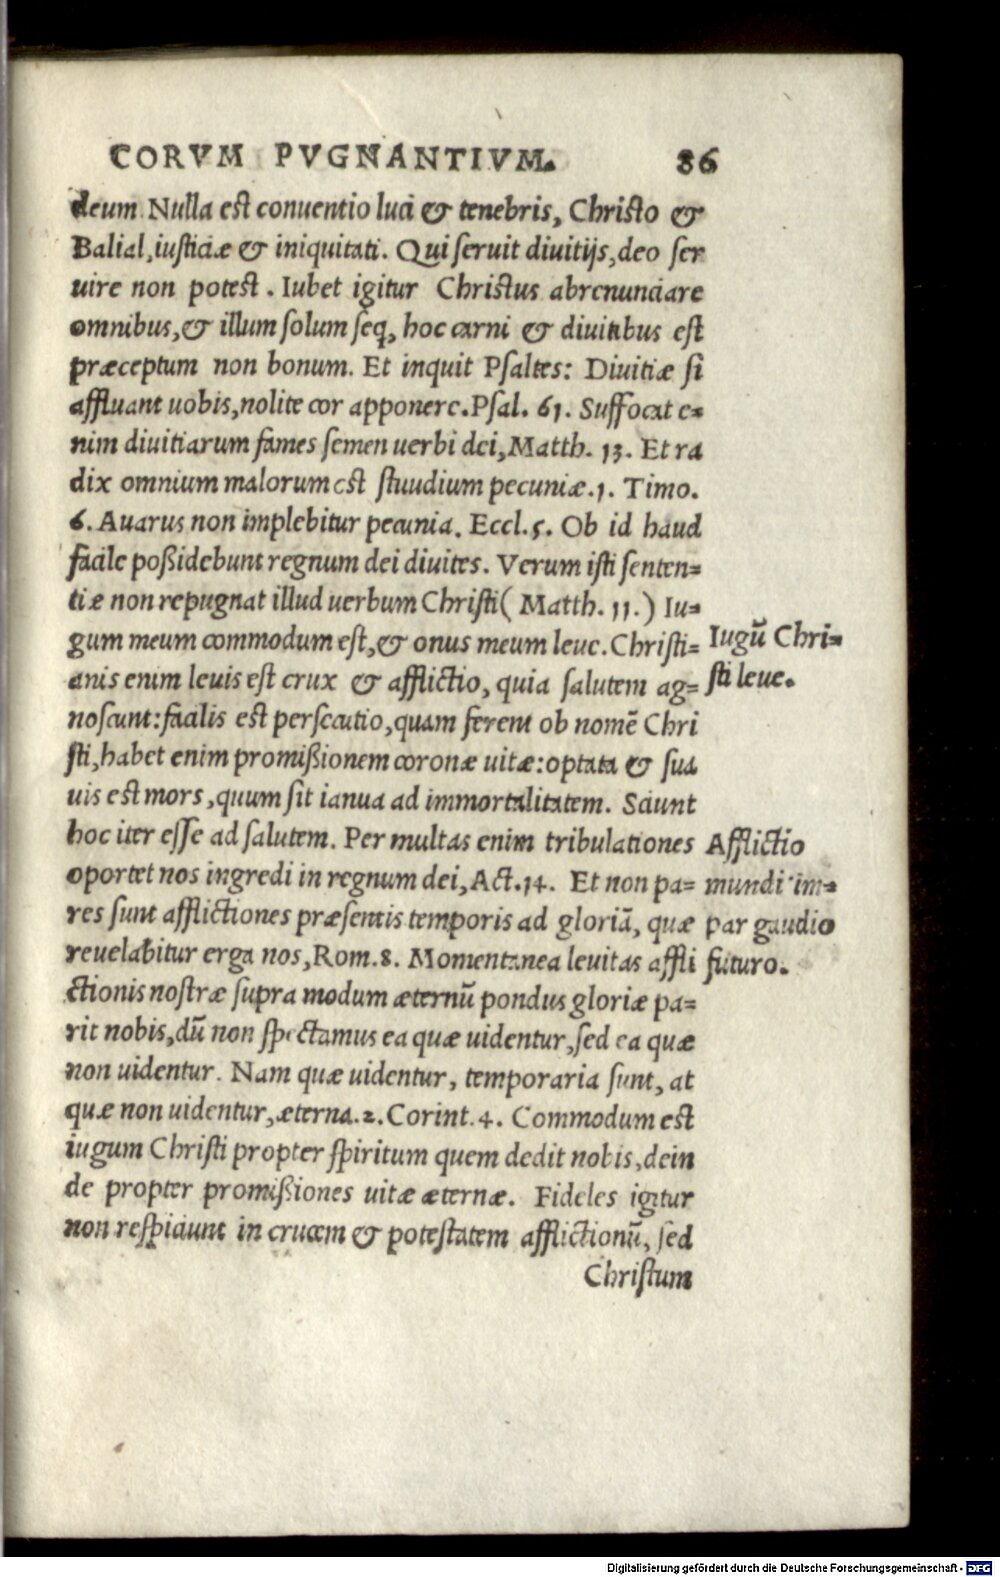 CORVM PVGNANTIVM. 86
deum Nulla est conuentio luci & tenebris, Christo &
Balial, iusticiæ & iniquitati. Qui seruit diuitijs, deo ser
uire non potest. Iubet igitur Christus abrenunciare
omnibus, & illum solum seq, hoc carni & diuitibus est
præceptum non bonum. Et inquit Psaltes: Diuitiæ si
affluant uobis, nolite cor apponere. Psal. 61. Suffocat e-
nim diuitiarum fames semen uerbi dei, Matth. 13. Et ra
dix omnium malorum est stuudium pecuniæ. 1. Timo.
6. Auarus non implebitur pecunia. Eccl. 5. Ob id haud
facile poßidebunt regnum dei diuites. Verum isti senten-
tiæ non repugnat illud uerbum Christi ( Matth. 11. ) Iu-
gum meum commodum est, & onus meum leue. Christi-
anis enim leuis est crux & afflictio, quia salutem ag-
noscunt: facilis est persecutio, quam ferent ob nomē Chri
sti, habet enim promißionem coronæ uitæ: optata & sua
uis est mors, quum sit ianua ad immortalitatem. Sciunt
hoc iter esse ad salutem. Per multas enim tribulationes
oportet nos ingredi in regnum dei, Act. 14. Et non pa-
res sunt afflictiones præsentis temporis ad gloriā, quæ
reuelabitur erga nos, Rom. 8. Momentanea leuitas affli
ctionis nostræ supra modum æternū pondus gloriæ pa-
rit nobis, dū non spectamus ea quæ uidentur, sed ea quæ
non uidentur. Nam quæ uidentur, temporaria sunt, at
quæ non uidentur, æterna. 2. Corint. 4. Commodum est
iugum Christi propter spiritum quem dedit nobis, dein
de propter promißiones uitæ æternæ. Fideles igitur
non respiciunt in crucem & potestatem afflictionū, sed
Christum
Iugū Chri-
sti leue.
Afflictio
mundi im-
par gaudio
futuro.
Digitalisierung gefördert durch die Deutsche Forschungsgemeinschaft - DFG